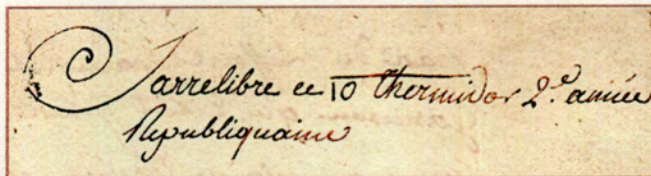 Sarrelibre ce 10 thermidor 2.e année
Republiquaine